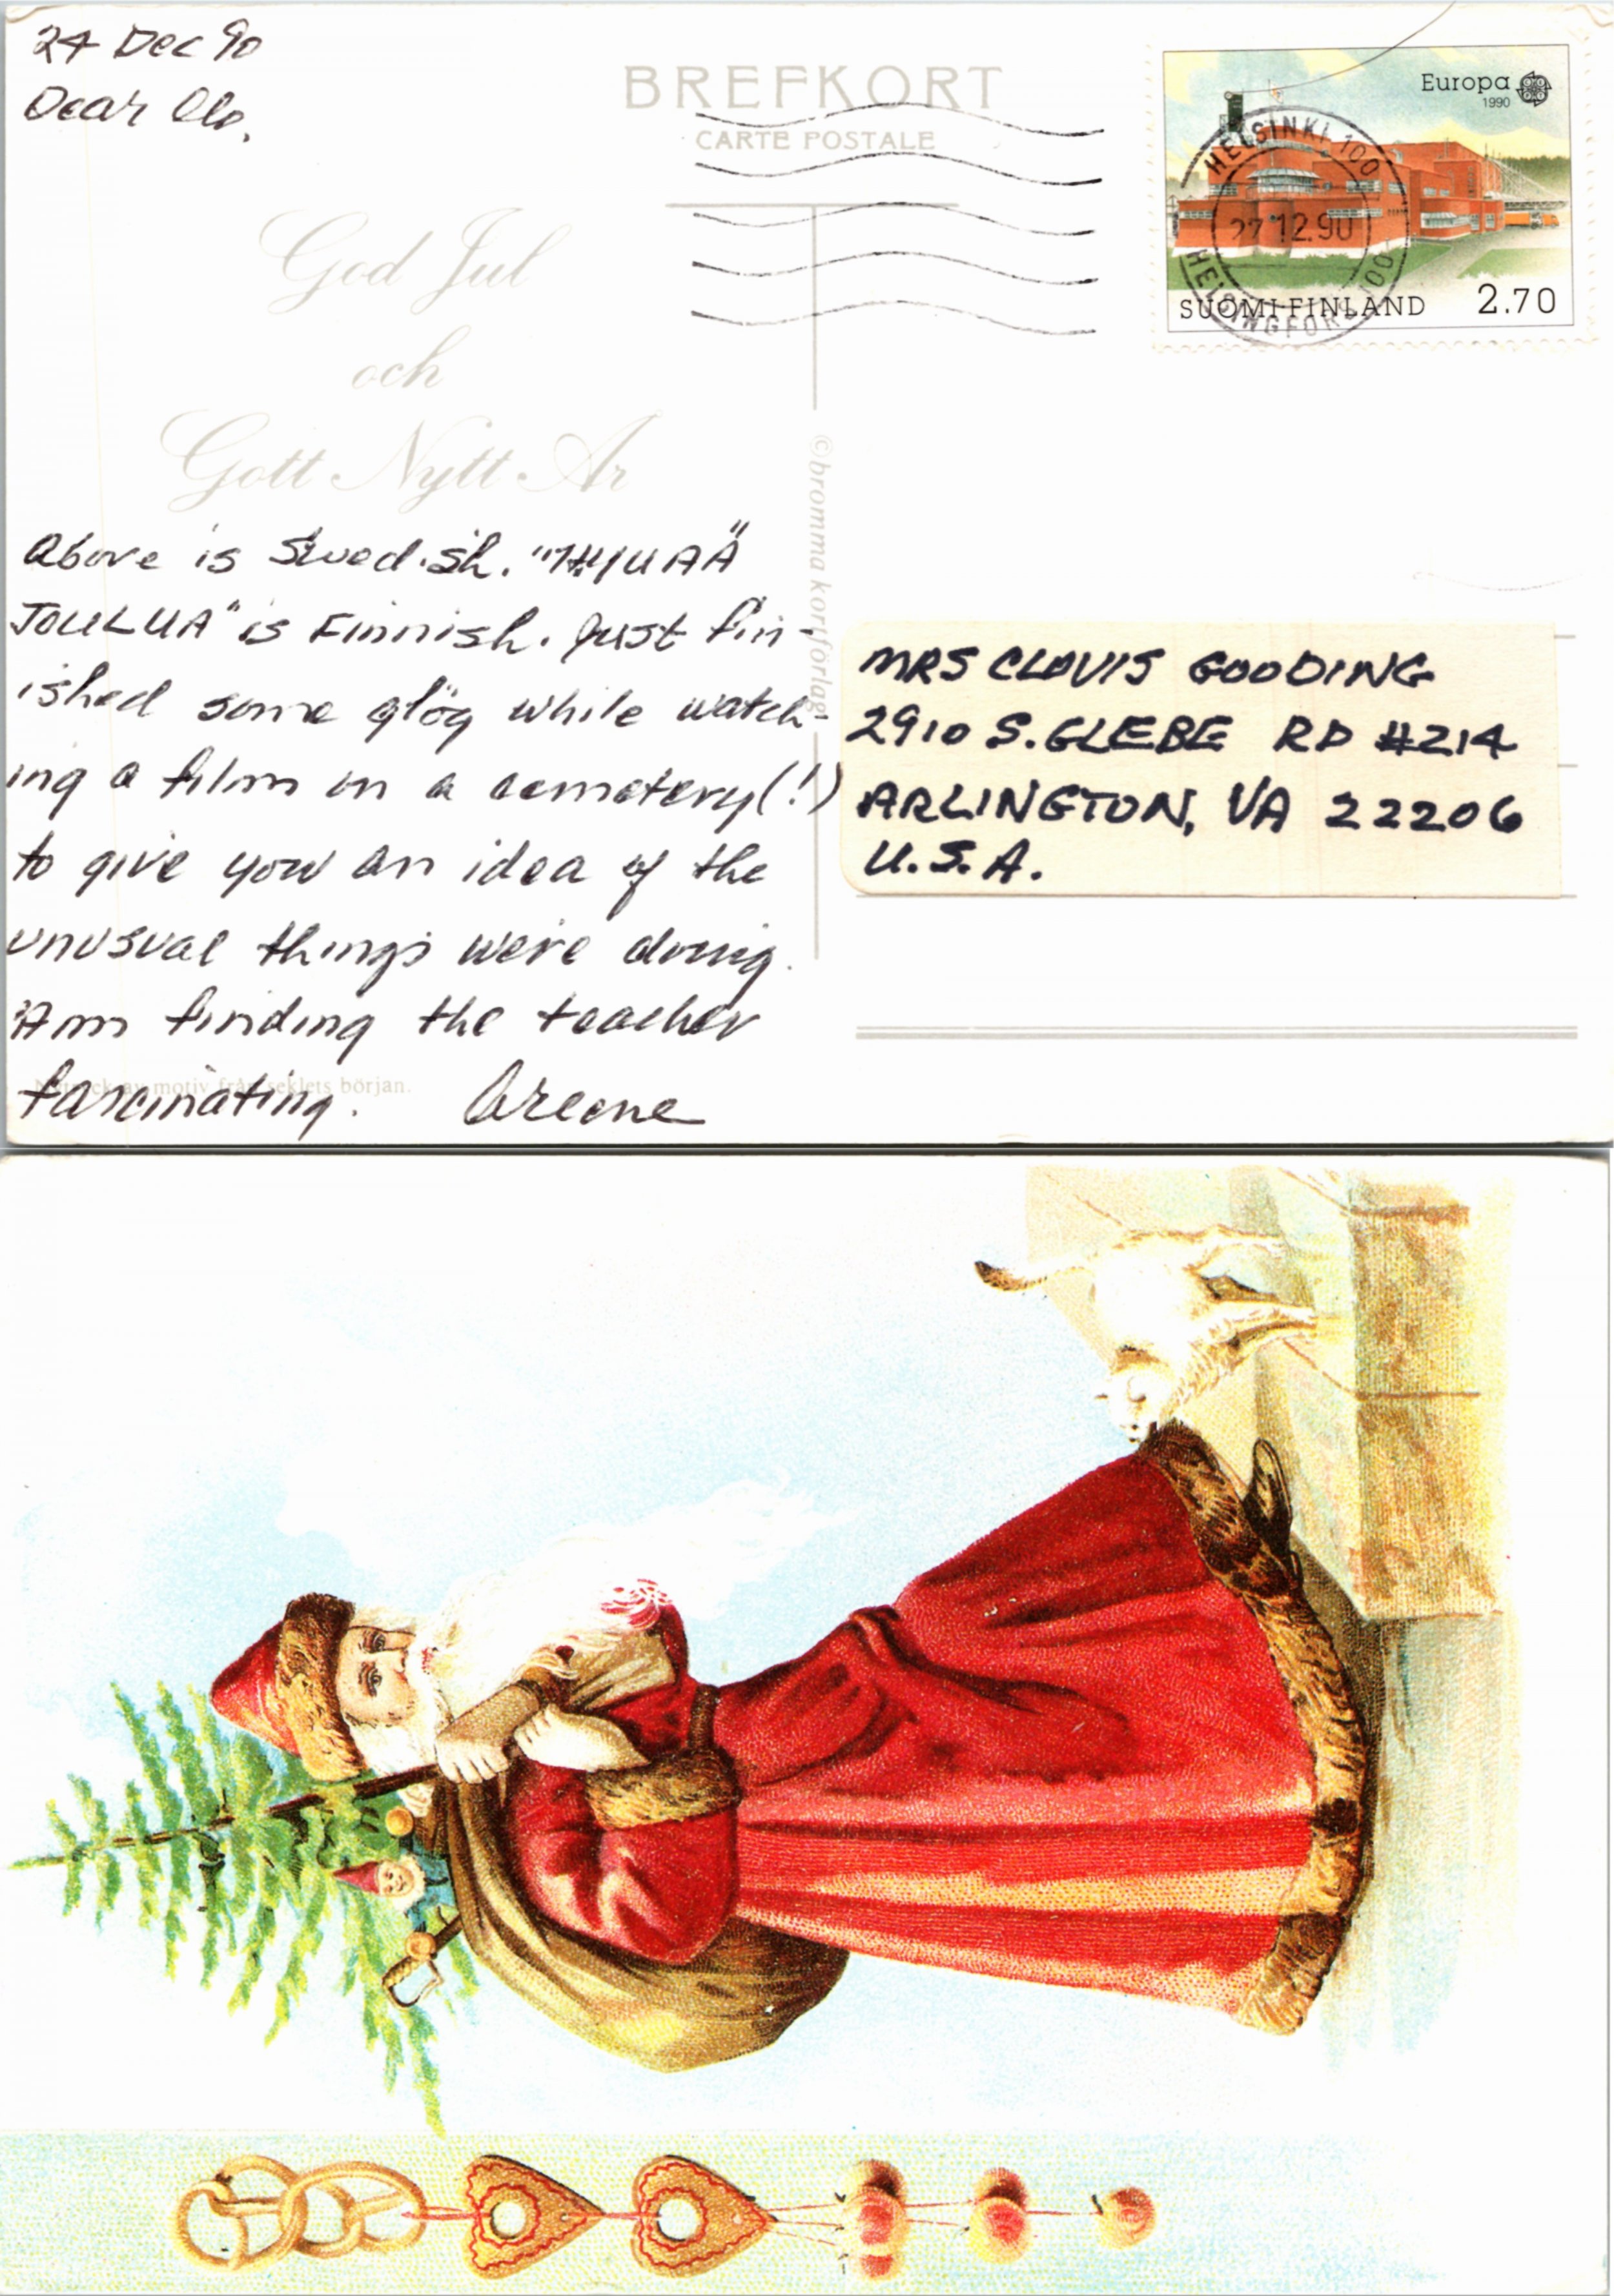 24 Dec 90
Dear Clo,
BREFKORT
CARTE POSTALE
God Jul
och
Gott Nytt År
Above is Swedish. "HYUAÄ
JOULUA" is Finnish. Just fin-
ished some glög while watch-
ing a film in a cemetery(!)
to give you an idea of the
unusual things we're doing.
Am finding the teacher
fascinating. Areene
Nytryck av motiv från seklets början.
©bromma kortförlag
Europa
1990
HELSINKI 100
27.12.90
HELSINGFORS 100
SUOMI FINLAND 2.70
MRS CLOVIS GOODING
2910 S. GLEBE RD #214
ARLINGTON, VA 22206
U.S.A.